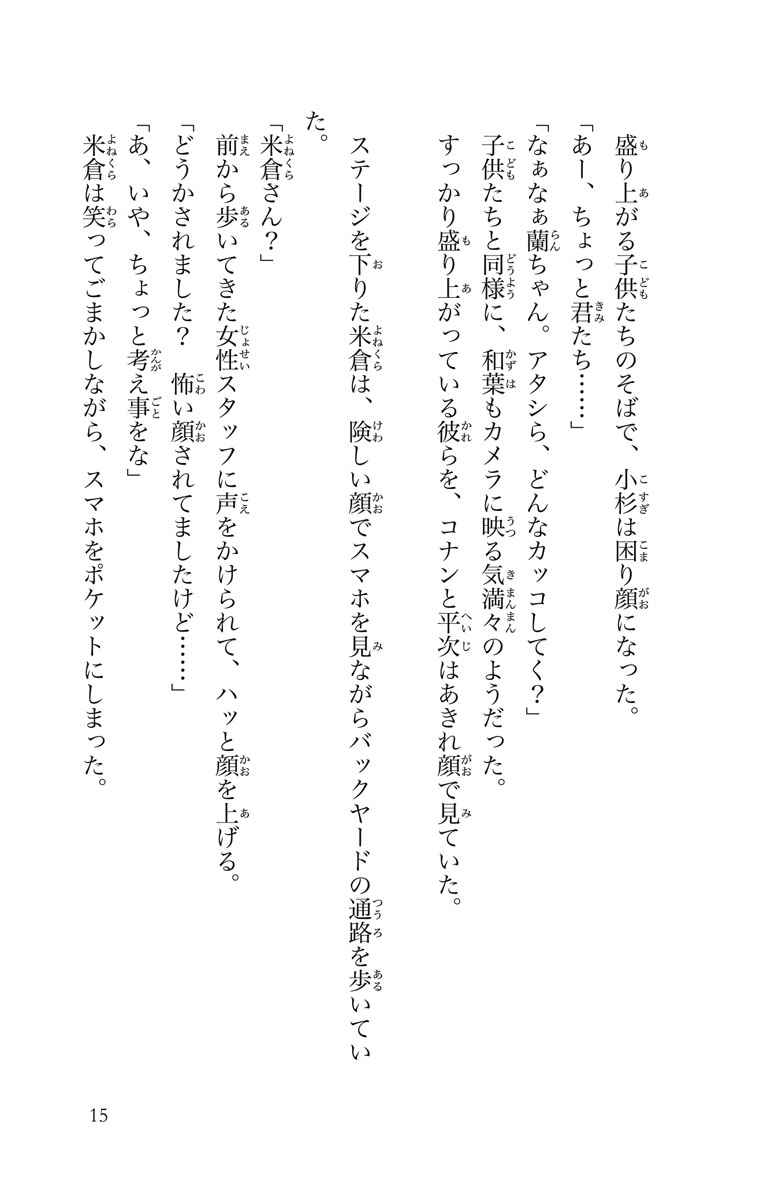 盛り上がる子供たちのそばで、小杉は困り顔になった。
「あー、ちょっと君たち……」
「なぁなぁ蘭ちゃん。アタシら、どんなカッコしてく？」
子供たちと同様に、和葉もカメラに映る気満々のようだった。
すっかり盛り上がっている彼らを、コナンと平次はあきれ顔で見ていた。
ステージを下りた米倉は、険しい顔でスマホを見ながらバックヤードの通路を歩いてい
た。
「米倉さん？」
前から歩いてきた女性スタッフに声をかけられて、ハッと顔を上げる。
「どうかされました？　怖い顔されてましたけど……」
「あ、いや、ちょっと考え事をな」
米倉は笑ってごまかしながら、スマホをポケットにしまった。
15